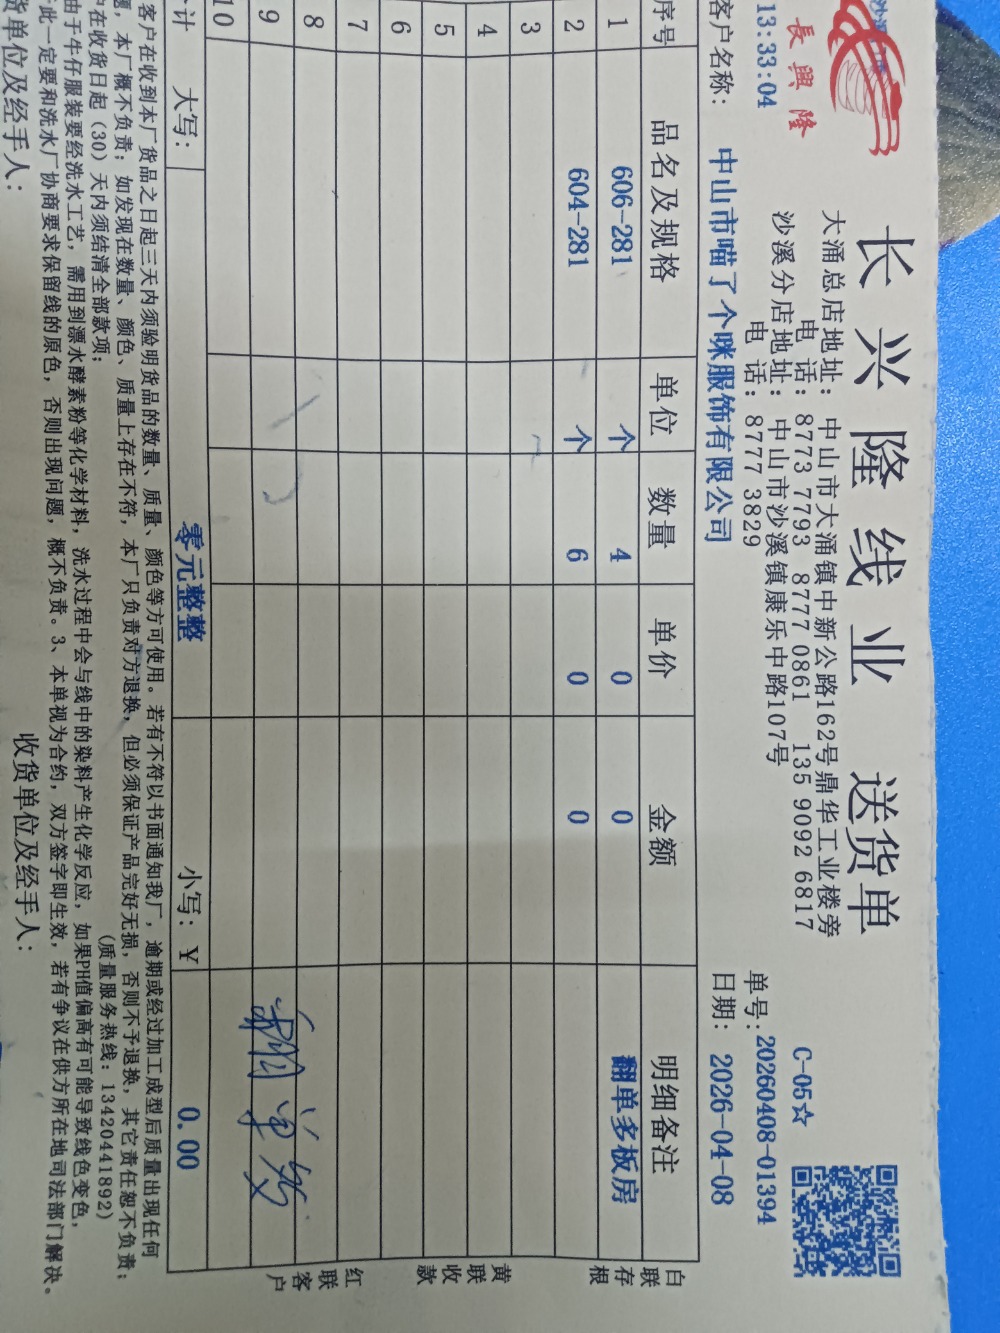 長興隆
长兴隆线业 送货单
大涌总店地址: 中山市大涌镇中新公路162号鼎华工业楼旁
电 话: 8773 7793 8777 0861 135 9092 6817
沙溪分店地址: 中山市沙溪镇康乐中路107号
电 话: 8777 3829
C-05☆
单号: 20260408-01394
13:33:04
客户名称: 中山市喵了个咪服饰有限公司
日期: 2026-04-08
序号 品名及规格 单位 数量 单价 金额 明细备注
1 606-281 个 4 0 0 翻单多板房
2 604-281 个 6 0 0
3
4
5
6
7
8
9
10
计 大写: 零元整整 小写: ¥ 0.00
白联存根
黄联收款
红联客户
客户在收到本厂货品之日起三天内须验明货品的数量、质量、颜色等方可使用。若有不符以书面通知我厂, 逾期或经过加工成型后质量出现任何
题, 本厂概不负责; 如发现在数量、颜色、质量上存在不符, 本厂只负责对方退换, 但必须保证产品完好无损, 否则不予退换, 其它责任恕不负责;
户在收货日起 (30) 天内须结清全部款项; (质量服务热线: 13420441892)
由于牛仔服装要经洗水工艺, 需用到漂水酵素粉等化学材料, 洗水过程中会与线中的染料产生化学反应, 如果PH值偏高有可能导致线色变色,
此一定要和洗水厂协商要求保留线的原色, 否则出现问题, 概不负责。3、本单视为合约, 双方签字即生效, 若有争议在供方所在地司法部门解决。
货单位及经手人: 收货单位及经手人: